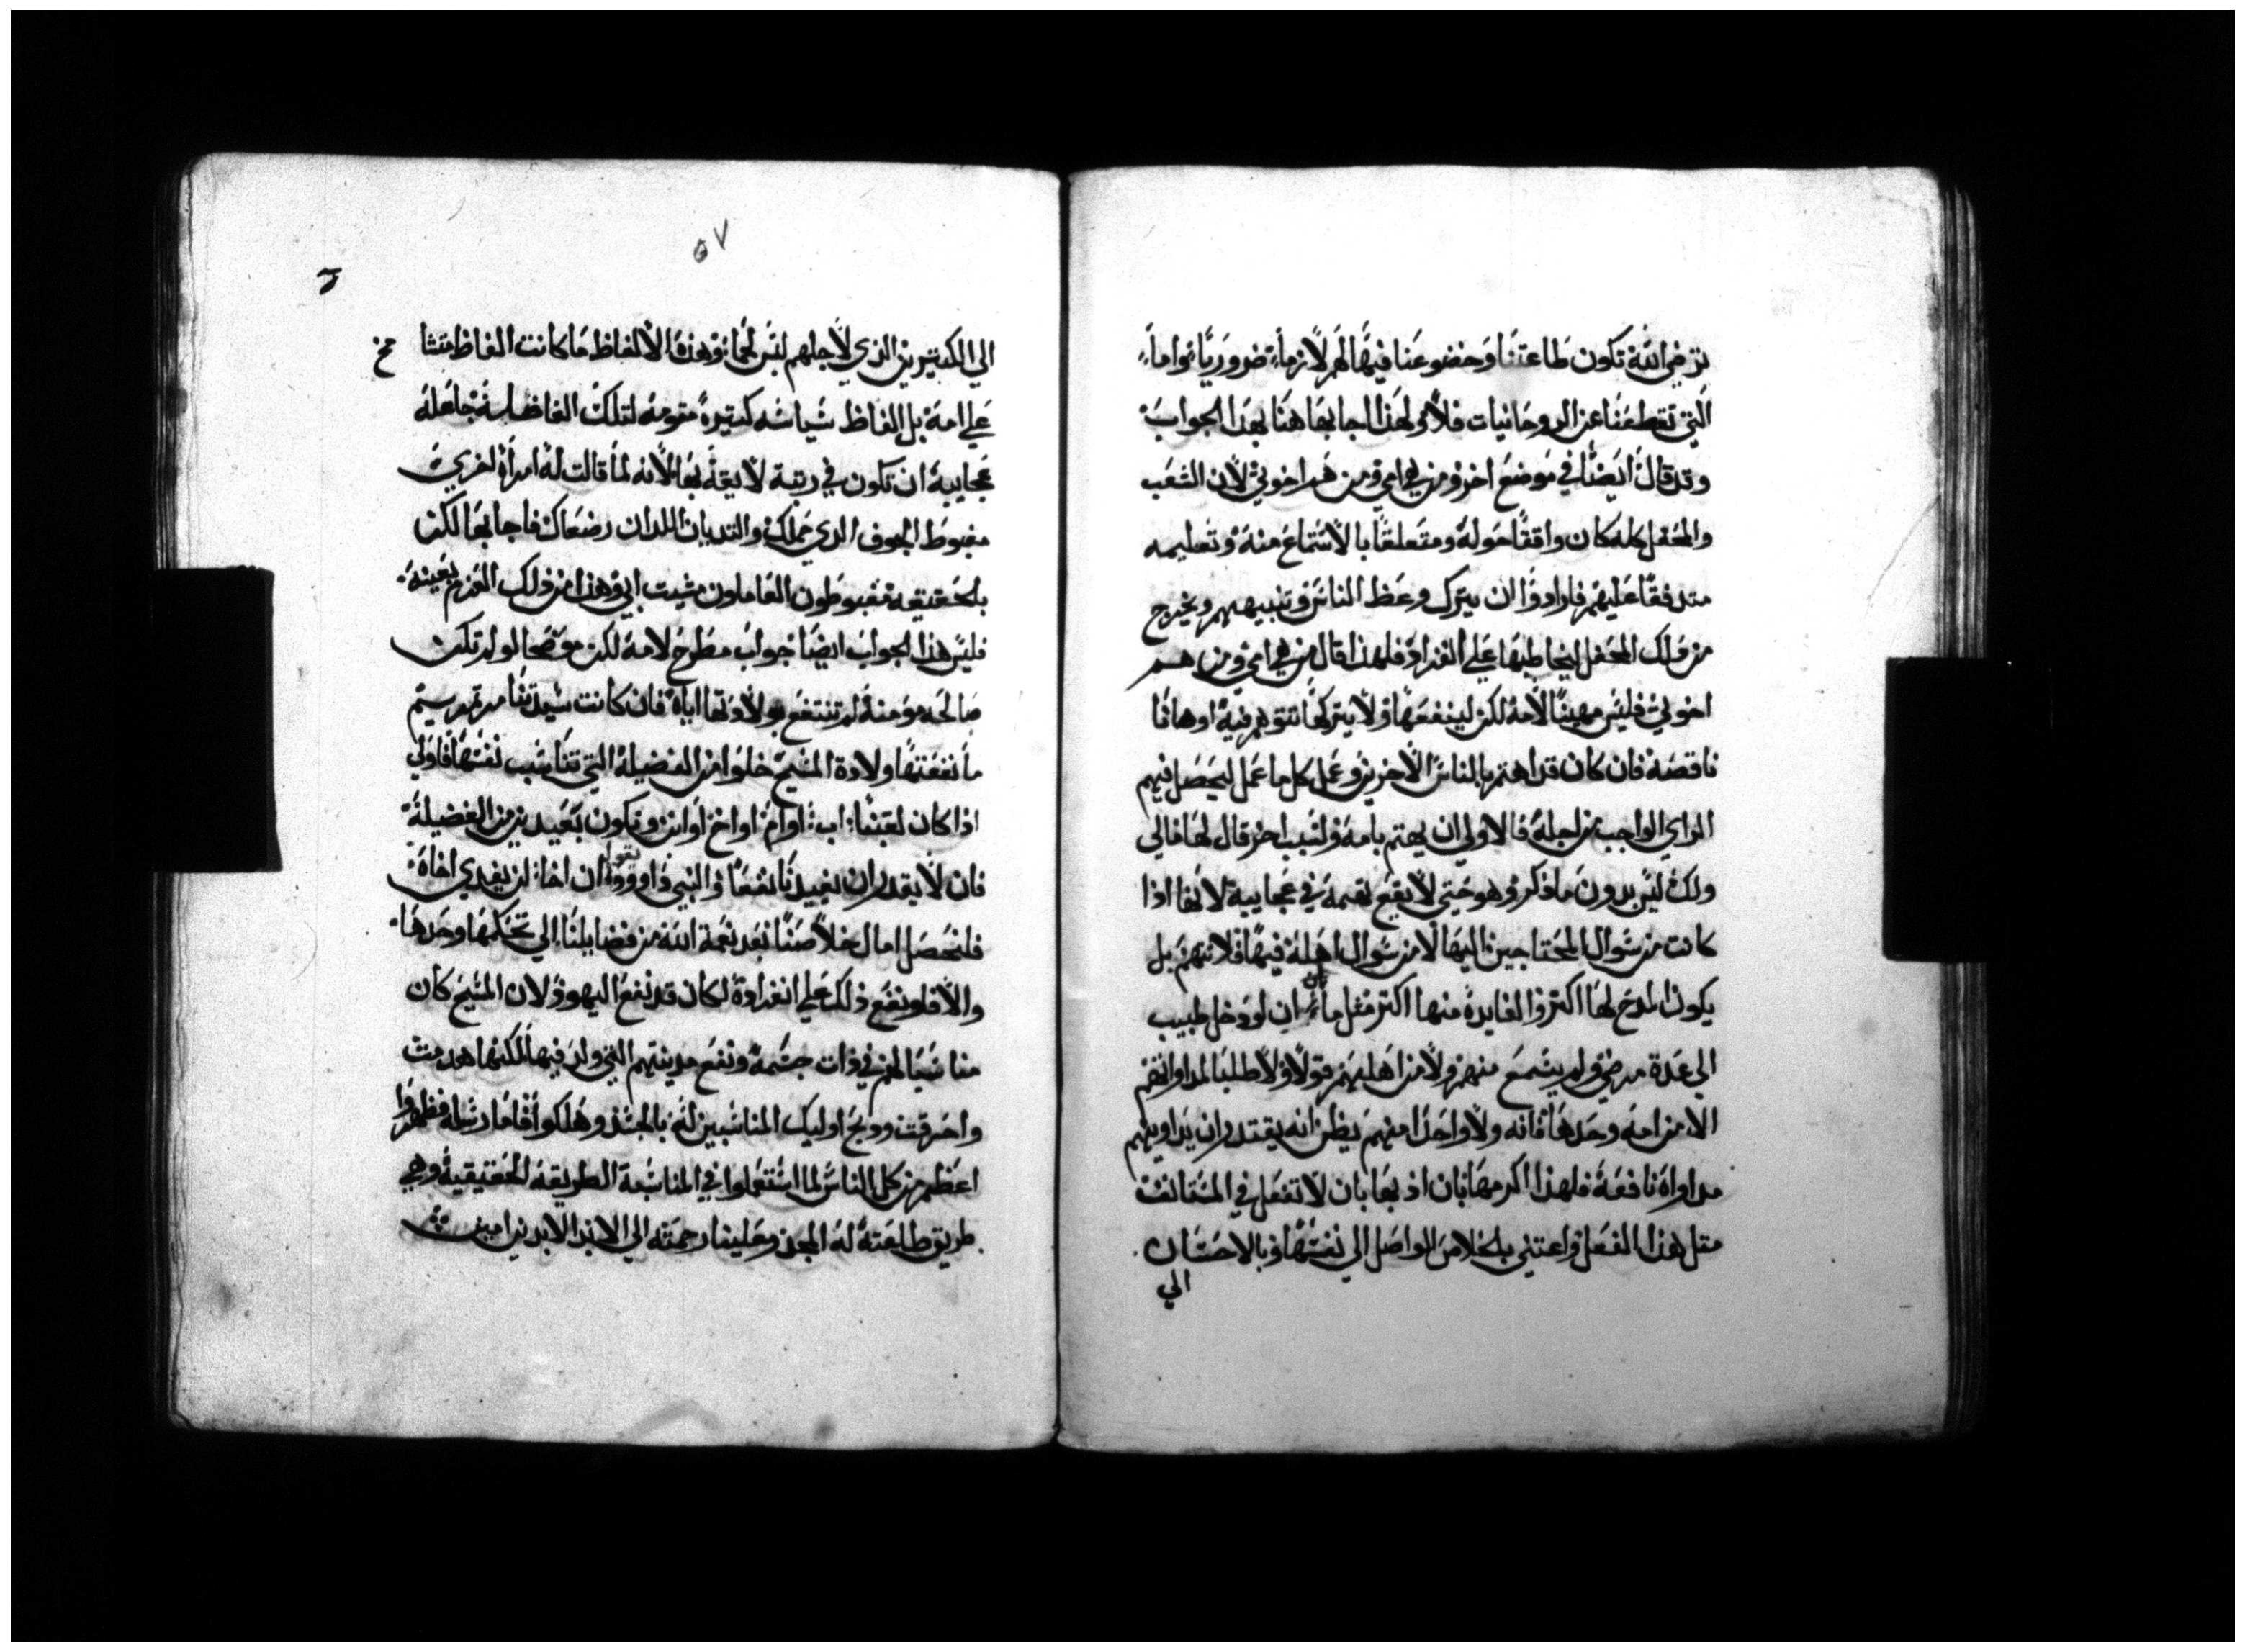 ترضي الله تكون طاعتنا وخضوعنا فيها لهم لازما ضروريا واما
التي تقطعنا عن الروحانيات فلا ولهذا اجابها هنا بهذا الجواب
وقد قال ايضا في موضع اخر ومن هي امي ومن هم اخوتي لان الشعب
والمحفل كله كان واقفا حوله ومتعلقا بالاستماع منه وتعليمه
متدفقا عليهم فارادوا ان يترك وعظ الناس وتنبيههم ويخرج
من ذلك المحفل ليخاطبها علي انفراد فلهذا قال من هي امي ومن هم
اخوتي فليس مهينا لامه لكن لينفعها ولا يتركها تتوهم فيه اوهاما
ناقصة فان كان قد اهتم بالناس الاخرين وعمل كل ما عمل ليحصل فيهم
الراي الواجب من اجله فالاولي ان يهتم بامه ولسبب اخر قال لها مالي
ولك ليس بدون ما ذكر وهو حتي لا يقع تهمة في عجايبه لانها اذا
كانت من سوال المحتاجين اليها لا من سوال اهله فيها فلا تتهم بل
يكون المدح لها اكثر والفايدة منها اكثر مثل ما ان لو دخل طبيب
الي عدة مرضي ولم يسمع منهم ولا من اهليهم قولا ولا طلبا لمداواتهم
الا من امه وحدها فانه ولا واحدا منهم يظن انه يقتدر ان يداويهم
مداواة نافعة فلهذا اكرمها بان اذ بها بان لا تفعل في المستانف
مثل هذا الفعل واعتني بالخلاص الواصل الي نفسها وبالاحسان
الي
٥٧
الي الكثيرين الذي لاجلهم لبس لحما وهذه الالفاظ ما كانت الفاظ متشا
علي امه بل الفاظ سياسه كثيرة مقومة لتلك الفاضلة جاعلة
عجايبه ان تكون في رتبة لايقة بها لانه لما قالت له امراة اخري
مغبوط الجوف الذي حملك والثديان اللذان رضعاك فاجابها لكن
بالحقيقة مغبوطون العاملون مشيت ابي وهذا من ذلك العزم بعينه
فليس هذا الجواب ايضا جواب مطرح لامه لكن موضحا لو لم تكن
صالحة مومنة لم تنتفع بولادتها اياه فان كانت سيدتنا مرتمريم
ما نفعتها ولادة المسيح خلوا من الفضيلة التي تناسب نفسها فاولي
اذا كان لعتنا اب او ام او اخ او ابن ونكون بعيدين من الفضيلة
فان لا يقدر ان يفيدنا نفعا والنبي داوود يقول ان اخا لن يفدي اخاه
فلنحصل امال خلاصنا بعد نعمة الله من فضايلنا الي تحكمها وحدها
والا فلو نفع ذلك علي انفراده لكان قد نفع اليهود لان المسيح كان
مناسبا لهم في ذات جسمه ونفع مدينتهم التي ولد فيها لكنها هدمت
واحرقت وذبح اوليك المناسبين له بالجسد وهلكوا فاما رسله فظهروا
اعظم من كل الناس لما استعملوا في المناسبة الطريقة الحقيقية وهي
طريق طاعته له المجد وعلينا رحمته الي الابد الابدين امين